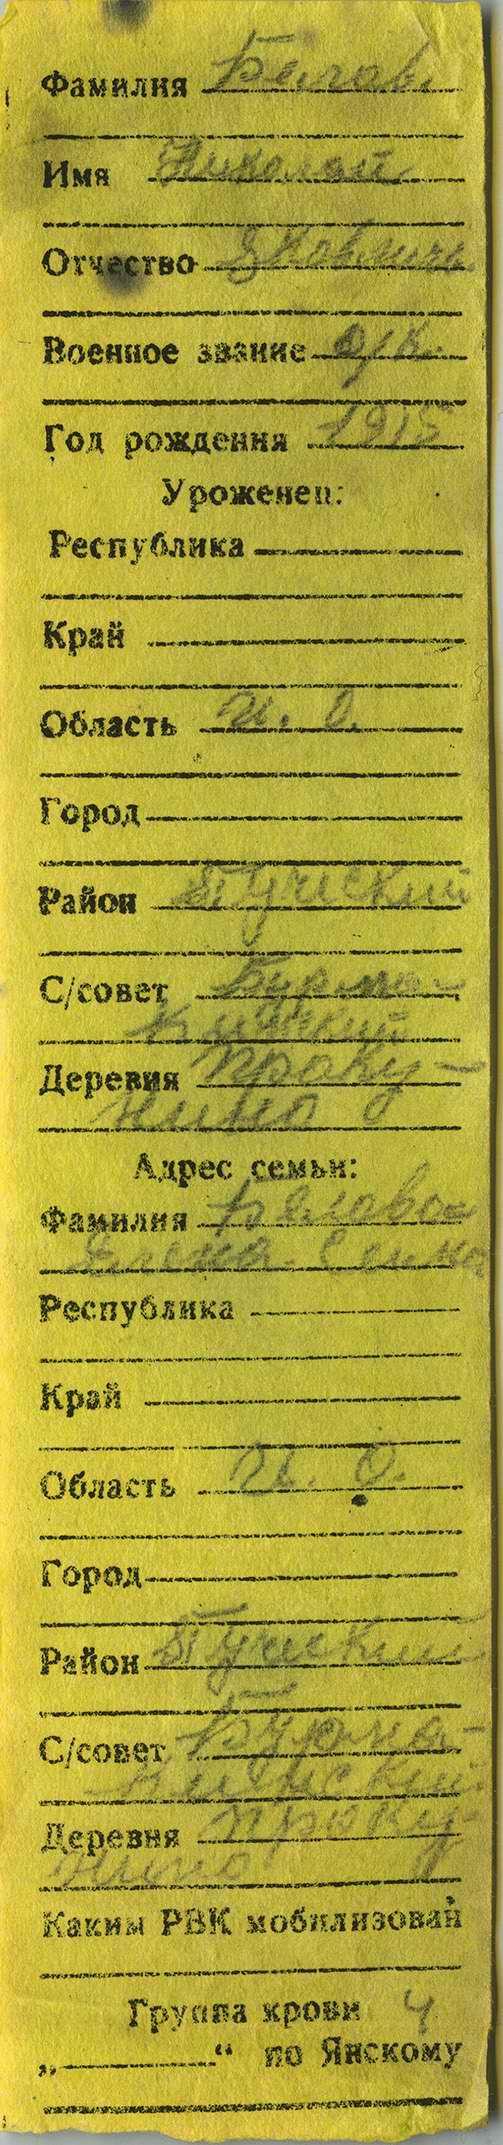 Фамилия Белов
Имя Николай
Отчество Яковлич
Военное звание
Год рождения 1915
Уроженец:
Республика
Край
Область И. О.
Город
Район
С/совет Бурма-
кинский
Деревия Проку-
нино
Адрес семьи:
Фамилия Белова
Елена Семно
Республика
Край
Область И. О.
Город
Район
С/совет Бурма-
кинский
Деревня Проку-
нино
Каким РВК мобилизован
Группа крови 4
„ “ по Янскому